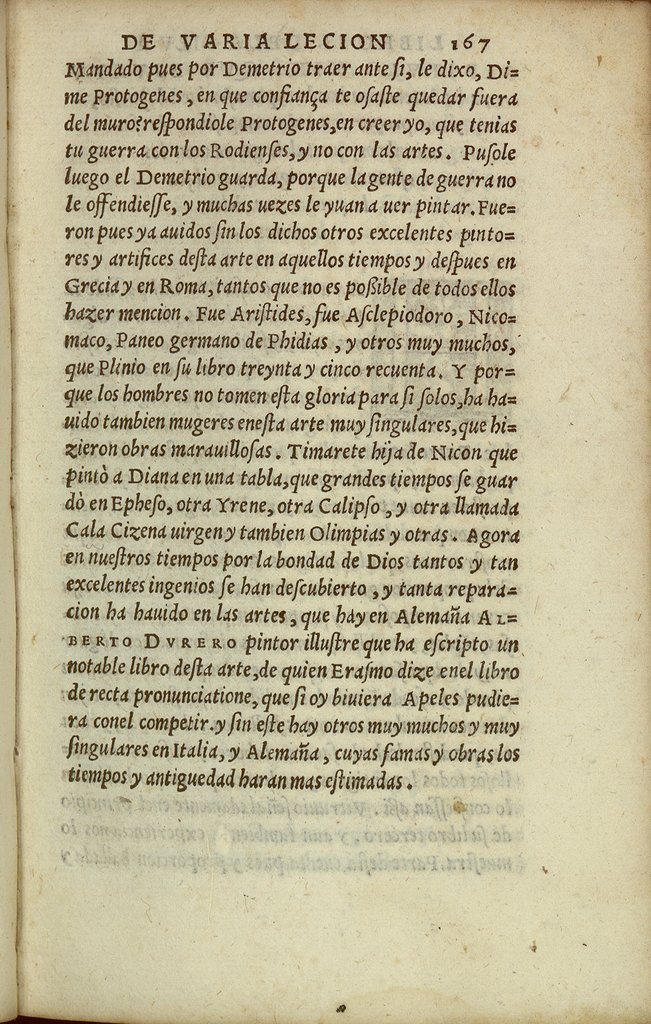 DE VARIA LECION 167
Mandado pues por Demetrio traer ante ſi, le dixo, Di=
me Protogenes, en que confiança te oſaſte quedar fuera
del muro? reſpondiole Protogenes, en creer yo, que tenias
tu guerra con los Rodienſes, y no con las artes. Puſole
luego el Demetrio guarda, porque la gente de guerra no
le offendieſſe, y muchas uezes le yuan a uer pintar. Fue=
ron pues ya auidos ſin los dichos otros excelentes pinto=
res y artifices deſta arte en aquellos tiempos y deſpues en
Grecia y en Roma, tantos que no es poßible de todos ellos
hazer mencion. Fue Ariſtides, fue Aſclepiodoro, Nico=
maco, Paneo germano de Phidias, y otros muy muchos,
que Plinio en ſu libro treynta y cinco recuenta. Y por=
que los hombres no tomen eſta gloria para ſi ſolos, ha ha=
uido tambien mugeres eneſta arte muy ſingulares, que hi=
zieron obras marauilloſas. Timarete hija de Nicon que
pintò a Diana en una tabla, que grandes tiempos ſe guar
dò en Epheſo, otra Yrene, otra Calipſo, y otra llamada
Cala Cizena uirgen y tambien Olimpias y otras. Agora
en nueſtros tiempos por la bondad de Dios tantos y tan
excelentes ingenios ſe han deſcubierto, y tanta repara=
cion ha hauido en las artes, que hay en Alemaña AL=
BERTO DVRERO pintor illuſtre que ha eſcripto un
notable libro deſta arte, de quien Eraſmo dize enel libro
de recta pronunciatione, que ſi oy biuiera Apeles pudie=
ra conel competir. y ſin eſte hay otros muy muchos y muy
ſingulares en Italia, y Alemaña, cuyas famas y obras los
tiempos y antiguedad haran mas eſtimadas.